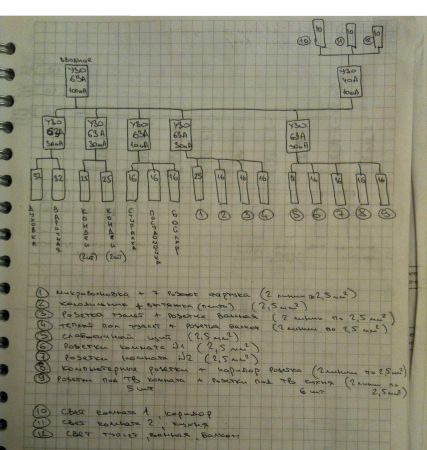 10 10 10
10 11 12
ВВОДНОЕ
УЗО 63А 100мА
УЗО 40А 10мА
УЗО 63А 30мА
УЗО 63А 30мА
УЗО 63А 10мА
УЗО 63А 30мА
УЗО 63А 30мА
32 32 25 25 16 16 16 25 16 16 16 16 16 16
1 2 3 4 5 6 7 8 9
ДУХОВКА
ВАРОЧНАЯ
КОНДЕЙ (2шт)
КОНДЕЙ (2шт)
СТИРАЛКА
ПОСУДОМОЙКА
БОЙЛЕР
1 микроволновка + 7 розеток фартука (2 линии по 2,5 мм²)
2 холодильник + вытяжка (2,5 мм²)
3 розетка туалет + розетка ванная (2 линии по 2,5 мм²)
4 теплый пол туалет + розетка балкон (2 линии по 2,5 мм²)
5 слаботочный щит (2,5 мм²)
6 розетки комната №1 (2,5 мм²)
7 розетки комната №2 (2,5 мм²)
8 компьютерные розетки + коридор розетка (2 линии по 2,5 мм²)
9 розетки под ТВ комната + розетки под ТВ кухня (2 линии по 2,5 мм²)
5 шт 6 шт
10 свет комната 1, коридор
11 свет комната 2, кухня
12 свет туалет, ванная, балкон